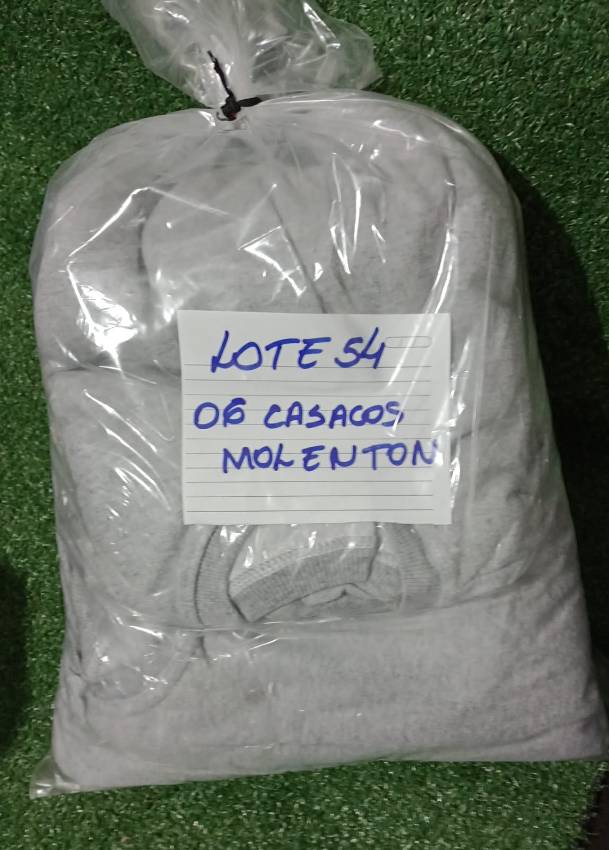 LOTE 54
06 CASACOS
MOLENTON